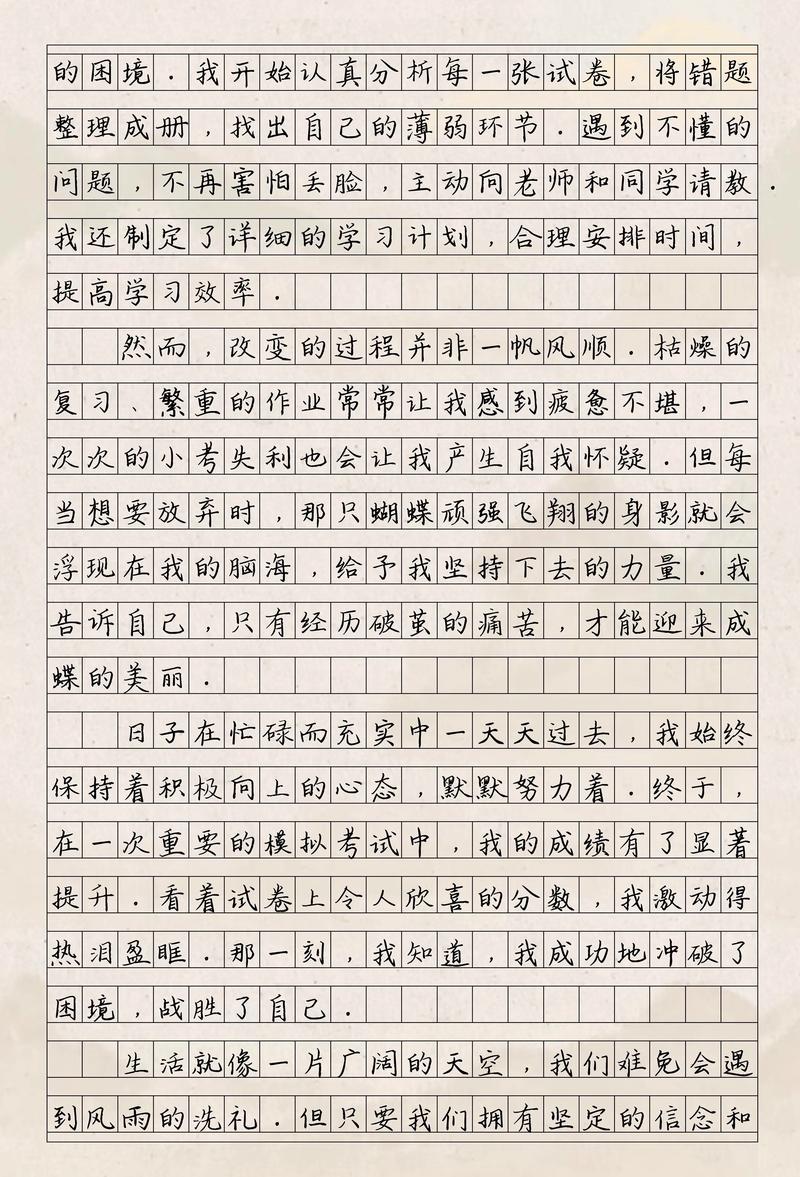 的困境．我开始认真分析每一张试卷，将错题
整理成册，找出自己的薄弱环节．遇到不懂的
问题，不再害怕丢脸，主动向老师和同学请教．
我还制定了详细的学习计划，合理安排时间，
提高学习效率．
然而，改变的过程并非一帆风顺．枯燥的
复习、繁重的作业常常让我感到疲惫不堪，一
次次的小考失利也会让我产生自我怀疑．但每
当想要放弃时，那只蝴蝶顽强飞翔的身影就会
浮现在我的脑海，给予我坚持下去的力量．我
告诉自己，只有经历破茧的痛苦，才能迎来成
蝶的美丽．
日子在忙碌而充实中一天天过去，我始终
保持着积极向上的心态，默默努力着．终于，
在一次重要的模拟考试中，我的成绩有了显著
提升．看着试卷上令人欣喜的分数，我激动得
热泪盈眶．那一刻，我知道，我成功地冲破了
困境，战胜了自己．
生活就像一片广阔的天空，我们难免会遇
到风雨的洗礼．但只要我们拥有坚定的信念和